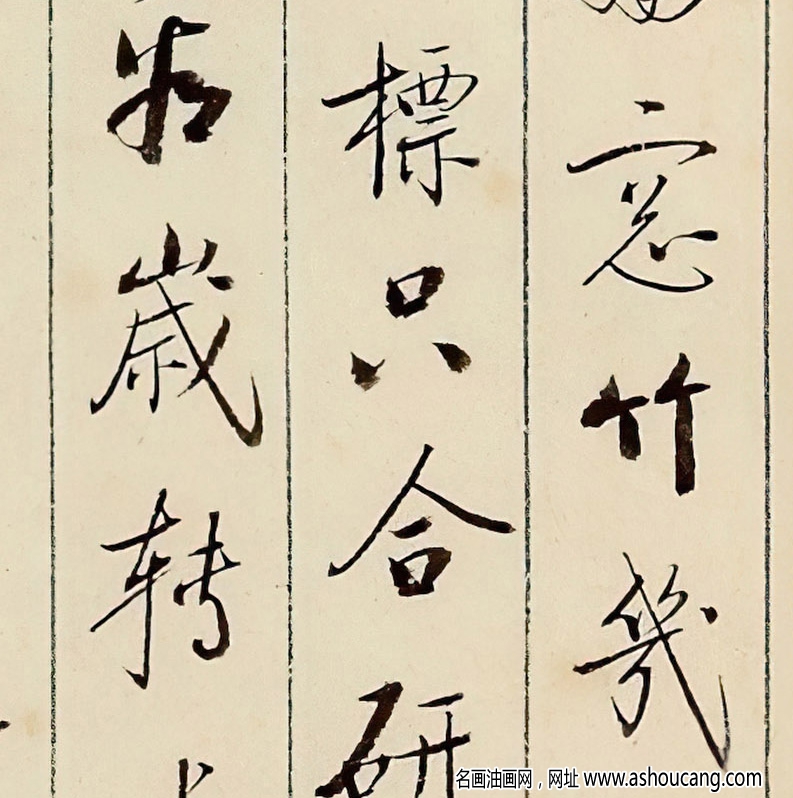 窓竹幾
標只合研
歲轉
名画油画网，网址 www.ashoucang.com